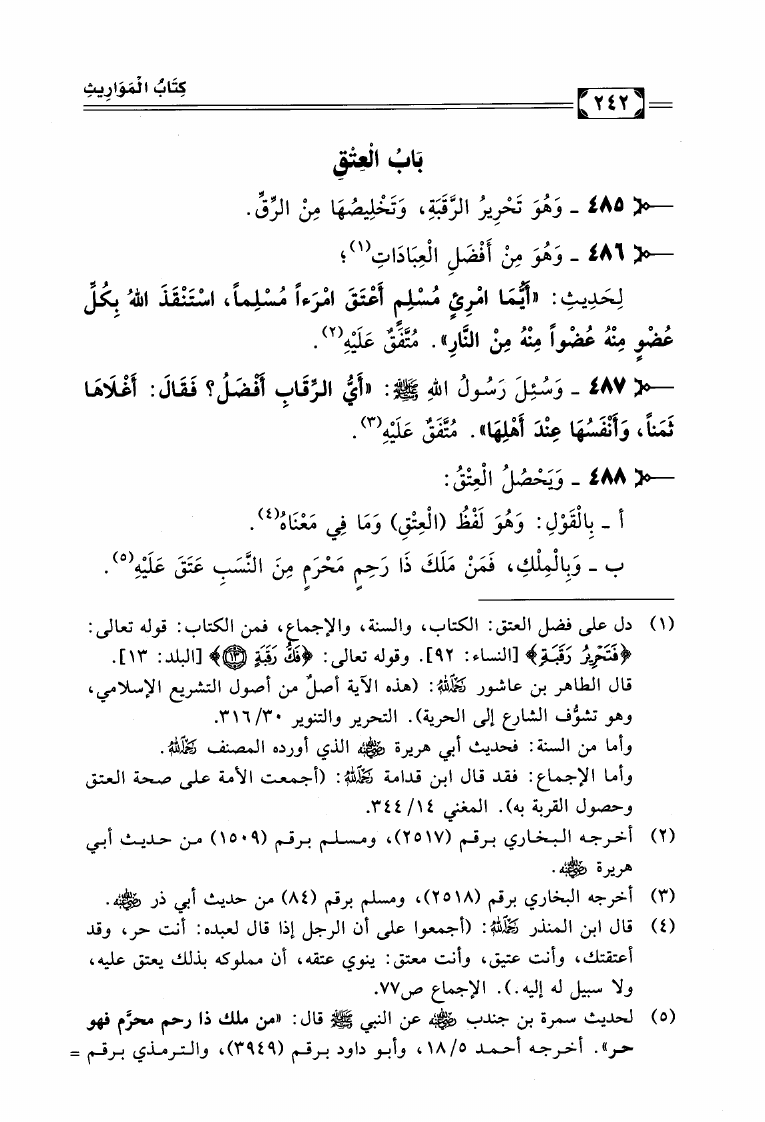 كِتَابُ الْمَوَارِيثِ
٢٤٢
بَابُ الْعِتْقِ
٤٨٥ ـ وَهُوَ تَحْرِيرُ الرَّقَبَةِ، وَتَخْلِيصُهَا مِنْ الرِّقِّ.
٤٨٦ ـ وَهُوَ مِنْ أَفْضَلِ الْعِبَادَاتِ(١)؛
لِحَدِيثِ: «أَيُّمَا امْرِئٍ مُسْلِمٍ أَعْتَقَ امْرَءاً مُسْلِماً، اسْتَنْقَذَ اللهُ بِكُلِّ
عُضْوٍ مِنْهُ عُضْواً مِنْهُ مِنْ النَّارِ». مُتَّفَقٌ عَلَيْهِ(٢).
٤٨٧ ـ وَسُئِلَ رَسُولُ اللهِ ﷺ: «أَيُّ الرِّقَابِ أَفْضَلُ؟ فَقَالَ: أَغْلَاهَا
ثَمَناً، وَأَنْفَسُهَا عِنْدَ أَهْلِهَا». مُتَّفَقٌ عَلَيْهِ(٣).
٤٨٨ ـ وَيَحْصُلُ الْعِتْقُ:
أ ـ بِالْقَوْلِ: وَهُوَ لَفْظُ (الْعِتْقِ) وَمَا فِي مَعْنَاهُ(٤).
ب ـ وَبِالْمِلْكِ، فَمَنْ مَلَكَ ذَا رَحِمٍ مَحْرَمٍ مِنَ النَّسَبِ عَتَقَ عَلَيْهِ(٥).
(١) دل على فضل العتق: الكتاب، والسنة، والإجماع، فمن الكتاب: قوله تعالى:
﴿فَتَحْرِيرُ رَقَبَةٍ﴾ [النساء: ٩٢]. وقوله تعالى: ﴿فَكُّ رَقَبَةٍ ١٣﴾ [البلد: ١٣].
قال الطاهر بن عاشور رَحِمَهُ اللهُ: (هذه الآية أصلٌ من أصول التشريع الإسلامي،
وهو تشوُّف الشارع إلى الحرية). التحرير والتنوير ٣١٦/٣٠.
وأما من السنة: فحديث أبي هريرة رضي الله عنه الذي أورده المصنف رَحِمَهُ اللهُ.
وأما الإجماع: فقد قال ابن قدامة رَحِمَهُ اللهُ: (أجمعت الأمة على صحة العتق
وحصول القربة به). المغني ٣٤٤/١٤.
(٢) أخرجه البخاري برقم (٢٥١٧)، ومسلم برقم (١٥٠٩) من حديث أبي
هريرة رضي الله عنه.
(٣) أخرجه البخاري برقم (٢٥١٨)، ومسلم برقم (٨٤) من حديث أبي ذر رضي الله عنه.
(٤) قال ابن المنذر رَحِمَهُ اللهُ: (أجمعوا على أن الرجل إذا قال لعبده: أنت حر، وقد
أعتقتك، وأنت عتيق، وأنت معتق: ينوي عتقه، أن مملوكه بذلك يعتق عليه،
ولا سبيل له إليه.). الإجماع ص٧٧.
(٥) لحديث سمرة بن جندب رضي الله عنه عن النبي ﷺ قال: «من ملك ذا رحم محرَّم فهو
حر». أخرجه أحمد ١٨/٥، وأبو داود برقم (٣٩٤٩)، والترمذي برقم =